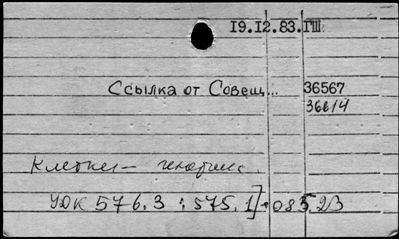 19.12.83.ГШ
Ссылка от Совещ... 36567
36614
Клетки —
УДК 576.3 : 575.1]•085.2В